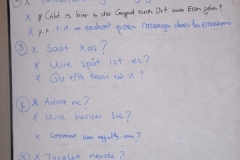 x Gibt es hier in der Gegend einen Ort zum Essen gehen?
x y a-t-il un endroit pour manger dans les environs
③ x Saat kaç?
x Wie spät ist es?
x Qu'elle heure est-il?
④ x Adın ne?
x Wie heissen Sie?
x Comment vous appellez-vous?
⑤ x Tuvalet nerde?